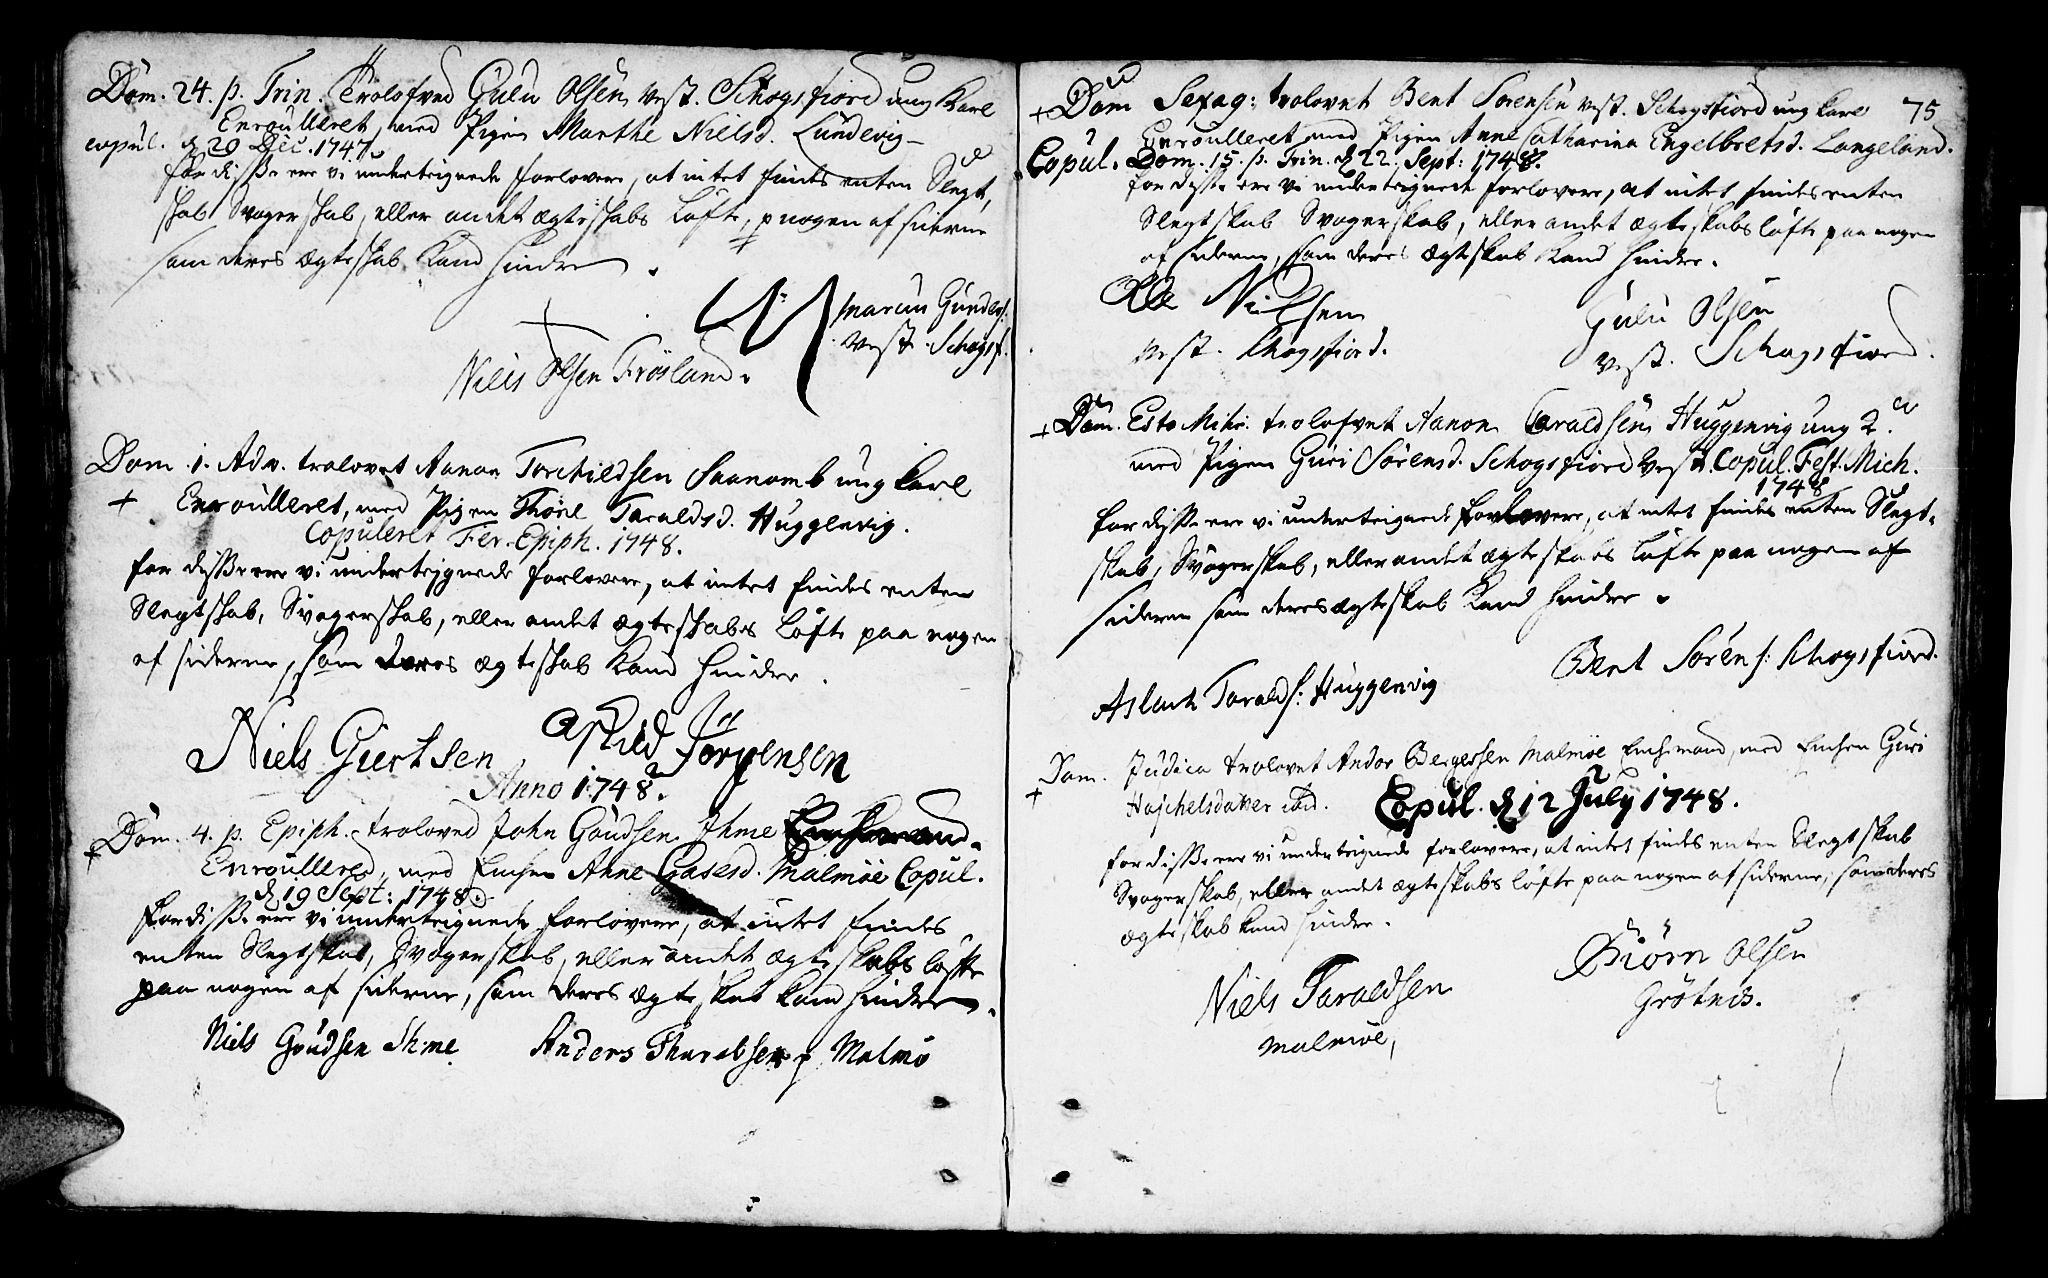 Dom. 24. p. Trin. Trolofved Gulu Olsen vest. Schogsfiord ung Karl
Enroulleret, med Pigen Marthe Nielsd. Lundevig
copul. d 29 Dec. 1747.
for disse ere vi undertegnede forlovere, at intet findes enten Slegt,
skab Svogerskab, eller andet ægteskabs Løfte, p nogen af siderne
som deres Ægteskab Kand hindre.
Marcus Gunders:
vest. Schogsf.
Niels Olsen Frøsland.
Dom. 1. Adv. trolovet Aanon Torchildsen Saanomb ung Karl
+ Enroulleret, med Pigen Thore Taraldsd. Huggenvig.
Copuleret Fer. Epiph. 1748.
for disse ere vi undertejgnede forlovere, at intet findes enten
Slegtskab, Svogerskab, eller andet ægteskabes Løfte paa nogen
af siderne, som deres ægteskab Kand hindre.
Niels Giertsen Asuld Jörgensen
Anno 1748.
+ Dom. 4. p. Epiph. troloved John Goudsen Ihme
Enroullered, med Enchen Anne Gasesd. Malmöe Copul.
d 19 Sept: 1748.
for disse ere vi undertegnede forlovere, at intet findes
enten Slegtskab, Svogerskab, eller andet ægteskabs løfte
paa nogen af siderne, som deres ægteskab kand hindre.
Niels Goudsen Ihme Anders Tharalsen p Malmö
75
+ Dom Sexag: trolovet Bent Sorensen vest. Schogsfiord ung karl
Enroulleret med Pigen Anne Catharina Engelbretsd. Langeland.
Copul. Dom. 15. p. Trin. d 22. Sept: 1748.
for disse ere vi undertegnede forlovere, at intet findes enten
Slegtskab Svogerskab, eller andet ægteskabs løfte paa nogen
af siderne, som deres Ægteskab Kand hindre.
Ole Nilsen Gulu Olsen
vest. Skogsfiord. vest. Schogsfiord.
+ Dom. Esto Mihi. trolofvet Aanon Taraldsen Huggenvig ung
med Pigen Guri Sørensd. Schogsfiord vest. Copul. Fest. Mich.
1748
for disse ere vi undertegnede forlovere, at intet findes enten Slegt-
skab, Svogerskab, eller andet ægteskabs løfte paa nogen af
siderne som deres ægteskab Kand hindre.
Aslach Taralds: Huggenvig Bent Sørens: Schogsfiord.
+ Dom. Judica trolovet Andor Bergessen Malmöe Enchemand, med Enchen Guri
Haschelsdatter ibid. Copul. d 12 July 1748.
for disse ere vi undertegnede forlovere, at intet findes enten Slegtskab
Svogerskab, eller andet ægteskabs løfte paa nogen af siderne, som deres
ægteskab kand hindre.
Niels Taraldsen Biørn Olsen
Malmöe, Grötnes.